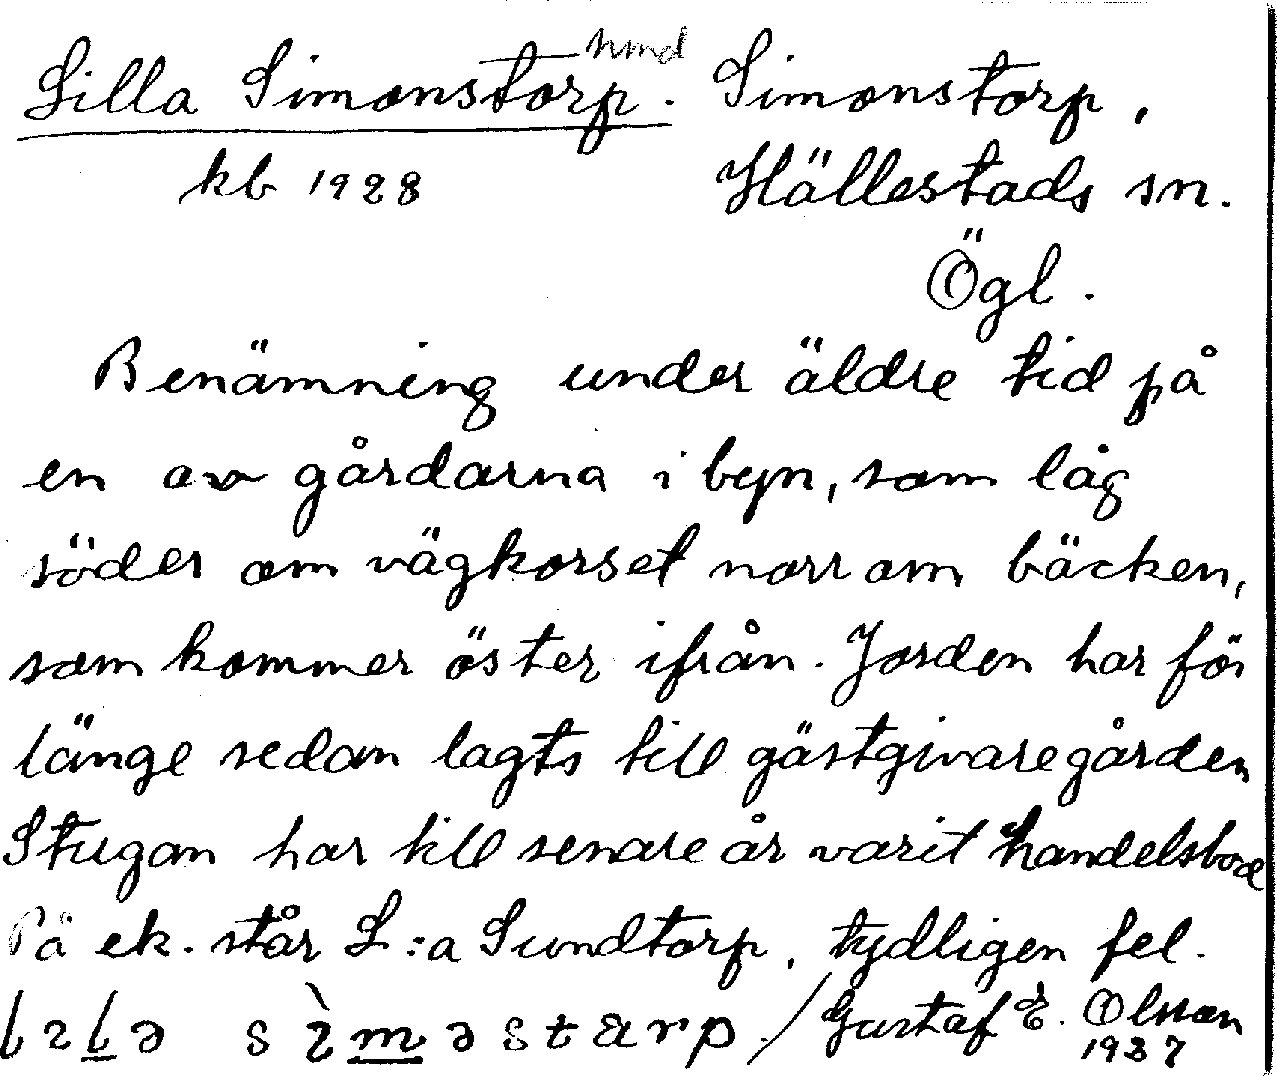 Lilla Simonstorp. hmd Simonstorp,
kb 1928 Hällestads sn.
Ögl.
Benämning under äldre tid på
en av gårdarna i byn, som låg
söder om vägkorset norr om bäcken,
som kommer öster ifrån. Jorden har för
länge sedan lagts till gästgivaregården
Stugan har till senare år varit handelsbod
På ek. står L:a Sundtorp, tydligen fel.
/ Gustaf E. Olsson
1937